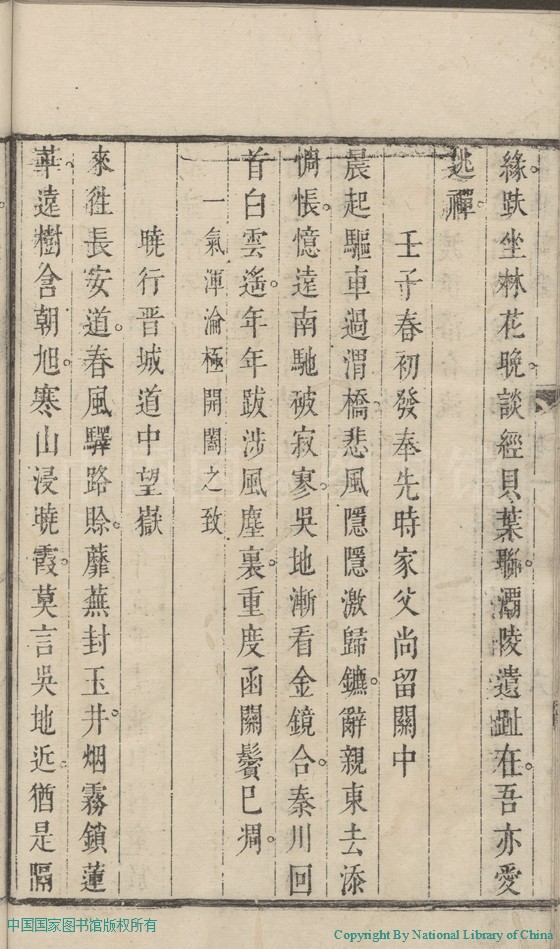 緣。趺坐林花晚。談經貝葉聯。灞陵遺趾在。吾亦愛
逃禪。
壬子春初發奉先時家父尚留關中
晨起驅車過渭橋。悲風隱隱激歸鑣。辭親東去添
惆悵。憶遠南馳破寂寥。吳地漸看金鏡合。秦川回
首白雲遙。年年跋涉風塵裏。重度函關鬢已凋。
一氣渾淪極開闔之致
曉行晋城道中望嶽
來徃長安道。春風驛路賒。蘼蕪封玉井。烟霧鎖蓮
華。遠樹含朝旭。寒山浸曉霞。莫言吳地近。猶是隔
中国国家图书馆版权所有
Copyright By National Library of China